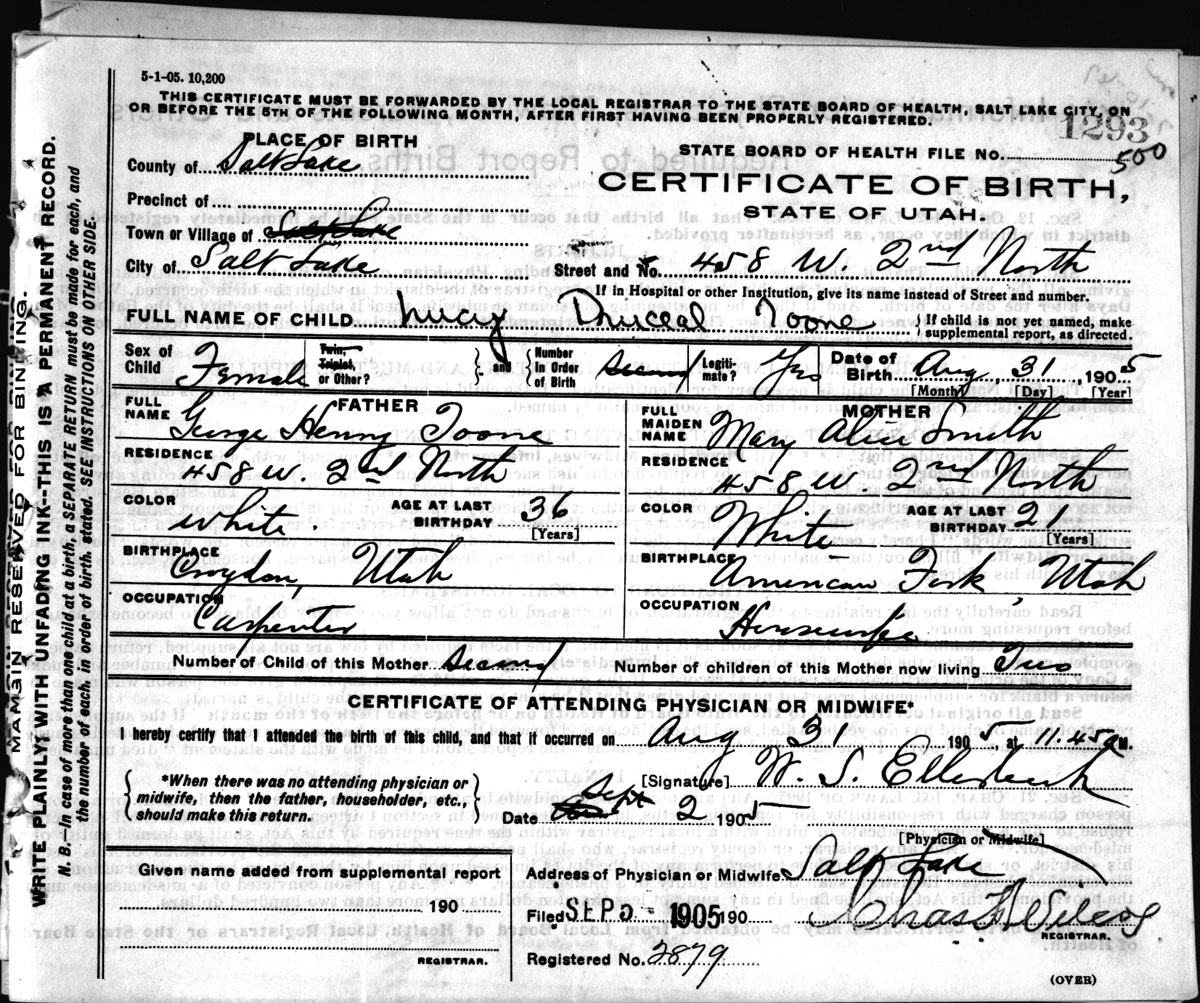 5-1-05. 10,200
THIS CERTIFICATE MUST BE FORWARDED BY THE LOCAL REGISTRAR TO THE STATE BOARD OF HEALTH, SALT LAKE CITY, ON
OR BEFORE THE 5TH OF THE FOLLOWING MONTH, AFTER FIRST HAVING BEEN PROPERLY REGISTERED.
1293
PLACE OF BIRTH
STATE BOARD OF HEALTH FILE NO. 500
County of Salt Lake
CERTIFICATE OF BIRTH,
Precinct of
STATE OF UTAH.
Town or Village of Salt Lake
City of Salt Lake Street and No. 458 W. 2nd North
If in Hospital or other Institution, give its name instead of Street and number.
FULL NAME OF CHILD Lucy Toone {If child is not yet named, make supplemental report, as directed.
Sex of Child Female Twin, Triplet, or Other? } and { Number in Order of Birth Second Legitimate? Yes Date of Birth Aug 31 1905
[Month] [Day] [Year]
FATHER MOTHER
FULL NAME George Henry Toone FULL MAIDEN NAME Mary Alice Smith
RESIDENCE 458 W. 2nd North RESIDENCE 458 W. 2nd North
COLOR White AGE AT LAST BIRTHDAY 36 [Years] COLOR White AGE AT LAST BIRTHDAY 21 [Years]
BIRTHPLACE Croydon, Utah BIRTHPLACE American Fork, Utah
OCCUPATION Carpenter OCCUPATION Housewife
Number of Child of this Mother Second Number of children of this Mother now living Two
CERTIFICATE OF ATTENDING PHYSICIAN OR MIDWIFE*
I hereby certify that I attended the birth of this child, and that it occurred on Aug 31 1905 at 11.45 M.
{*When there was no attending physician or
midwife, then the father, householder, etc.,
should make this return.}
[Signature] W. S. Ellerbeck
Date Sept 2 1905
[Physician or Midwife]
Given name added from supplemental report
Address of Physician or Midwife Salt Lake
190
Filed SEP 5 - 1905 190
REGISTRAR.
REGISTRAR.
Registered No. 2879
(OVER)
MARGIN RESERVED FOR BINDING.
WRITE PLAINLY, WITH UNFADING INK-THIS IS A PERMANENT RECORD.
N. B.—In case of more than one child at a birth, a SEPARATE RETURN must be made for each, and
the number of each, in order of birth, stated. SEE INSTRUCTIONS ON OTHER SIDE.